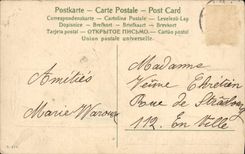 Postkarte - Carte Postale - Post Card
Correspondenzkarte - Cartolina Postale - Levelező-Lap
Dopisnice - Brefkort - Briefkaart - Brevkort
Tarjeta postal - ОТКРЫТОЕ ПИСЬМО. - Cartão postal
Union postale universelle.
Amitiés
Marie
Madame
Chrétien
Rue de Strasbourg
112. En Ville